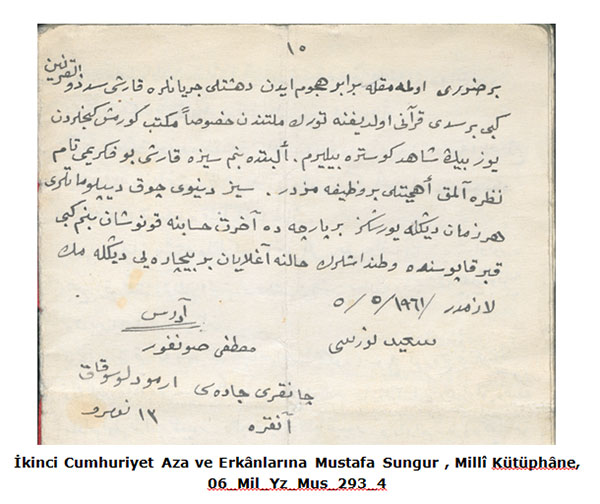 ١٥
بر ضررى اولمه مقله برابر هجوم ايدن دهشتلى جريانلره قارشى سد ذوالقرنين
كبى بر سدى قرآنى اولديغنه تورك ملتندن خصوصاً مكتب كورمش كنجلردن
يوز بيڭ شاهد كوستره بيليرم. ألبتده بنم سيزه قارشى بو فكريمى تام
نظره آلمق أهميتلى بر وظيفه مزدر. سيز دنيوى چوق ديپلوماتلرى
هر زمان ديڭله يورسڭز بر پارچه ده آخرت حسابنه قونوشان بنم كبى
قبر قاپوسنده وطنداشلرڭ حالنه آغلايان بر بيچاره يى ديڭله مك
لازمدر ٥/٥/١٩٦١
سعيد نورسى
آدرس
مصطفى صونغور
چانقرى جاده سى ارمودلو سوقاق
١٣ نومرو
آنقره
İkinci Cumhuriyet Aza ve Erkânlarına Mustafa Sungur , Millî Kütüphâne,
06_Mil_Yz_Mus_293_4